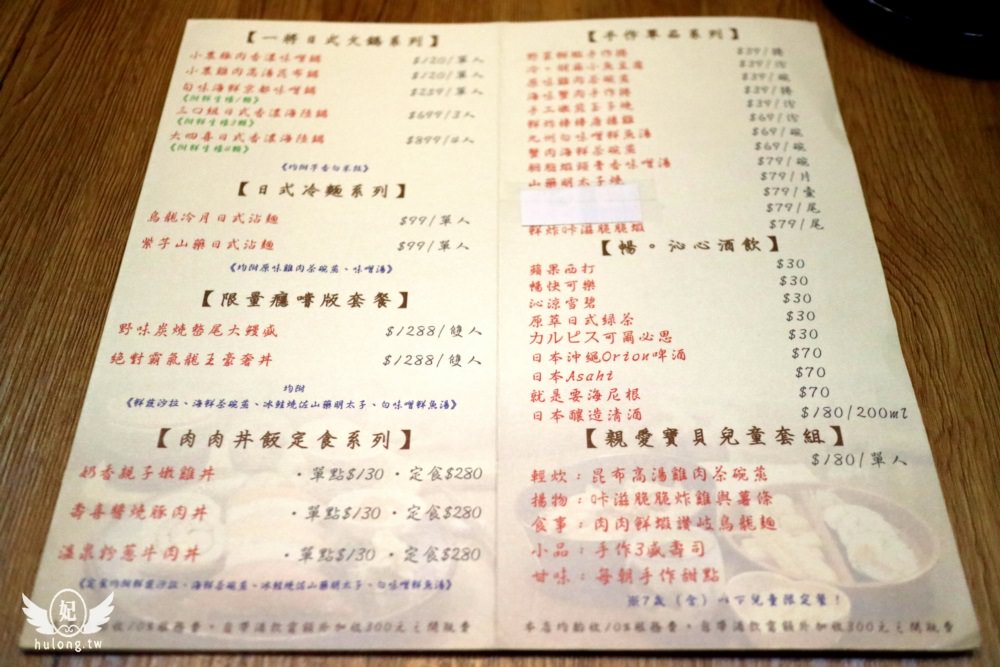 【一將日式火鍋系列】
小農雞肉香濃味噌鍋 $120/單人
小農雞肉高湯昆布鍋 $120/單人
旬味海鮮京都味噌鍋 $259/單人
《附鮮生蠔1顆》
三口組日式香濃海陸鍋 $699/3人
《附鮮生蠔3顆》
大四喜日式香濃海陸鍋 $899/4人
《附鮮生蠔4顆》
【日式冷麵系列】
烏龍冷月日式沾麵 $99/單人
紫芋山藥日式沾麵 $99/單人
《均附原味雞肉茶碗蒸、味噌湯》
【限量癮嚐版套餐】
野味炭燒整尾大鰻盛 $1288/雙人
絕對霸氣龍王豪奢丼 $1288/雙人
均附
《鮮蔬沙拉、海鮮茶碗蒸、冰鮭燒佐山藥明太子、旬味噌鮮魚湯》
【肉肉丼飯定食系列】
奶香親子嫩雞丼 ・單點$130・定食$280
壽喜醬燒豚肉丼 ・單點$130・定食$280
溫泉粉蔥牛肉丼 ・單點$130・定食$280
《定食均附鮮蔬沙拉、海鮮茶碗蒸、冰鮭燒佐山藥明太子、旬味噌鮮魚湯》
收10%服務費,自帶酒飲需額外加收300元之開瓶費
【手作單品系列】
$39/捲
冷。胡麻小魚豆腐 $39/份
原味雞肉茶碗蒸 $39/碗
海味蟹肉手作捲 $39/捲
$39/份
$69/份
九州旬味噌鮮魚湯 $69/碗
蟹肉海鮮茶碗蒸 $69/碗
$79/碗
山藥明太子燒 $79/片
$79/壺
$79/尾
鮮炸咔滋脆脆蝦 $79/尾
【暢。沁心酒飲】
蘋果西打 $30
暢快可樂 $30
沁涼雪碧 $30
原萃日式綠茶 $30
カルピス可爾必思 $30
日本沖繩Orion啤酒 $70
日本Asahi $70
就是要海尼根 $70
日本釀造清酒 $180/200ml
【親愛寶貝兒童套組】
$180/單人
輕炊:昆布高湯雞肉茶碗蒸
揚物:咔滋脆脆炸雞與薯條
食事:肉肉鮮蝦讚岐烏龍麵
小品:手作3感壽司
甘味:每朝手作甜點
※7歲(含)以下兒童限定餐!
本店均酌收10%服務費,自帶酒飲需額外加收300元之開瓶費
妃
hulong.tw